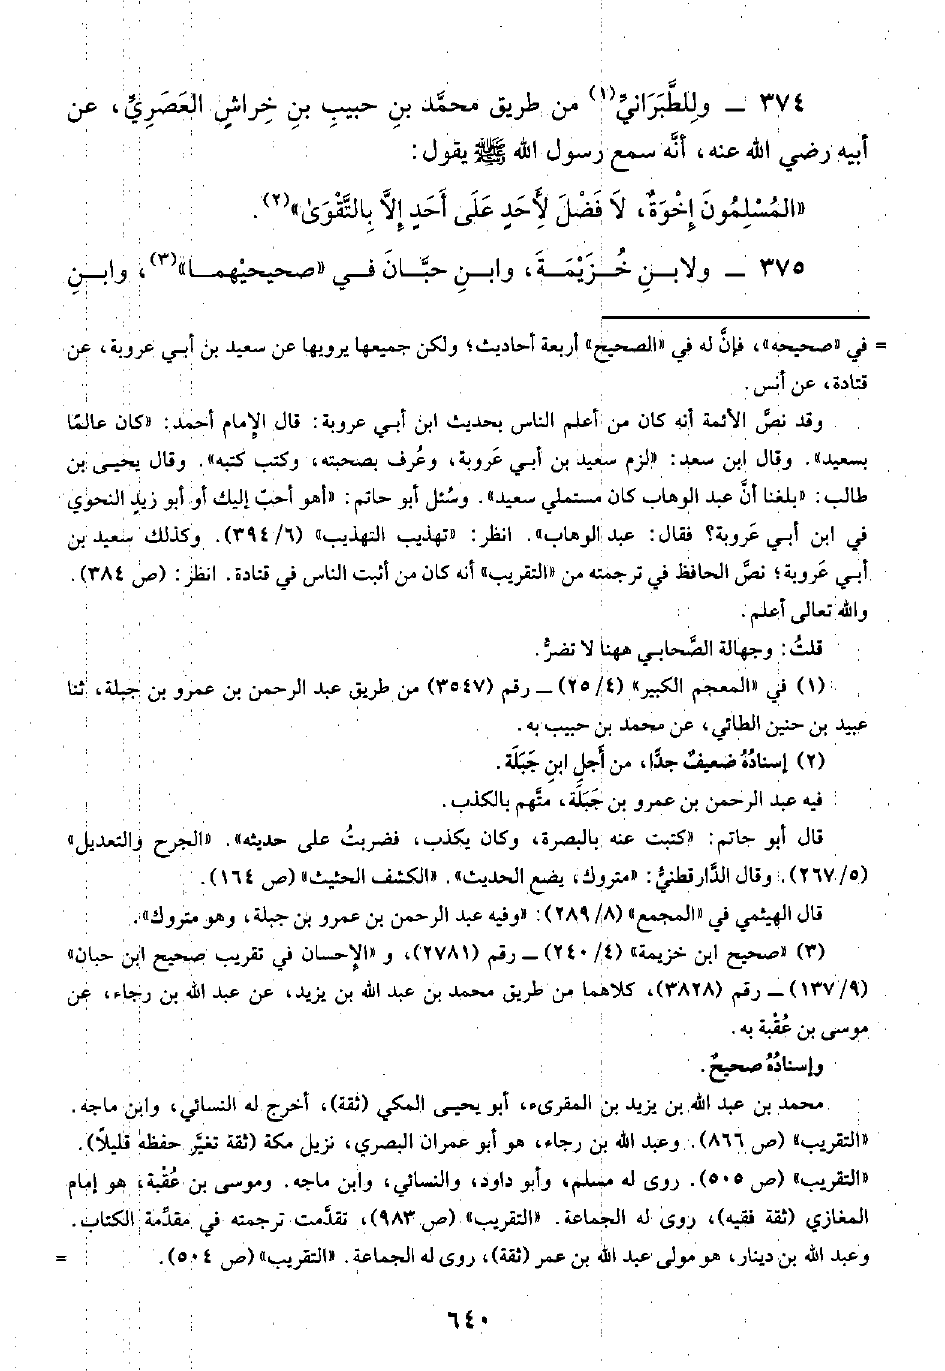 ٣٧٤ ــ وللطَّبَرَانيِّ(١) من طريق محمَّد بنِ حبيبِ بنِ خِراشٍ العَصَرِيِّ، عن
أبيه رضي الله عنه، أنَّه سمع رسول الله ﷺ يقول:
«المُسْلِمُونَ إخْوَةٌ، لاَ فَضْلَ لأَِحَدٍ عَلَى أَحَدٍ إلاَّ بِالتَّقْوَىٰ»(٢).
٣٧٥ ــ ولابنِ خُزَيْمَةَ، وابنِ حبَّانَ في «صحيحيْهما»(٣)، وابنِ
= في «صحيحه»، فإنَّ له في «الصحيح» أربعة أحاديث؛ ولكن جميعها يرويها عن سعيد بن أبي عروبة، عن
قتادة، عن أنس.
وقد نصَّ الأئمة أنه كان من أعلم الناس بحديث ابن أبي عروبة: قال الإمام أحمد: «كان عالمًا
بسعيد». وقال ابن سعد: «لزم سعيد بن أبي عَروبة، وعُرف بصحبته، وكتب كتبه». وقال يحيى بن
طالب: «بلغنا أنَّ عبد الوهاب كان مستملي سعيد». وسُئل أبو حاتم: «أهو أحبّ إليك أو أبو زيدٍ النحوي
في ابن أبي عَروبة؟ فقال: عبد الوهاب». انظر: «تهذيب التهذيب» (٣٩٤/٦). وكذلك سعيد بن
أبي عَروبة؛ نصَّ الحافظ في ترجمته من «التقريب» أنه كان من أثبت الناس في قتادة. انظر: (ص ٣٨٤).
والله تعالى أعلم.
قلتُ: وجهالة الصَّحابي ههنا لا تضرُّ.
(١) في «المعجم الكبير» (٢٥/٤) ــ رقم (٣٥٤٧) من طريق عبد الرحمن بن عمرو بن جبلة، ثنا
عبيد بن حنين الطائي، عن محمد بن حبيب به.
(٢) إسنادُهُ ضعيفٌ جدًّا، من أجلِ ابنِ جَبَلَة.
فيه عبد الرحمن بن عمرو بن جَبَلَة، متَّهم بالكذب.
قال أبو حاتم: «كتبت عنه بالبصرة، وكان يكذب، فضربتُ على حديثه». «الجرح والتعديل»
(٢٦٧/٥). وقال الدَّارقطنيُّ: «متروك، يضع الحديث». «الكشف الحثيث» (ص ١٦٤).
قال الهيثمي في «المجمع» (٢٨٩/٨): «وفيه عبد الرحمن بن عمرو بن جبلة، وهو متروك».
(٣) «صحيح ابن خزيمة» (٢٤٠/٤) ــ رقم (٢٧٨١)، و «الإحسان في تقريب صحيح ابن حبان»
(١٣٧/٩) ــ رقم (٣٨٢٨)، كلاهما من طريق محمد بن عبد الله بن يزيد، عن عبد الله بن رجاء، عن
موسى بن عُقْبة به.
وإسنادُهُ صحيحٌ.
محمد بن عبد الله بن يزيد بن المقرىء، أبو يحيى المكي (ثقة)، أخرج له النسائي، وابن ماجه.
«التقريب» (ص ٨٦٦). وعبد الله بن رجاء، هو أبو عمران البصري، نزيل مكة (ثقة تغيَّر حفظه قليلاً).
«التقريب» (ص ٥٠٥). روى له مسلم، وأبو داود، والنسائي، وابن ماجه. وموسى بن عُقْبة، هو إمام
المغازي (ثقة فقيه)، روى له الجماعة. «التقريب» (ص ٩٨٣)، تقدَّمت ترجمته في مقدَّمة الكتاب.
وعبد الله بن دينار، هو مولى عبد الله بن عمر (ثقة)، روى له الجماعة. «التقريب» (ص ٥٠٤). =
٦٤٠